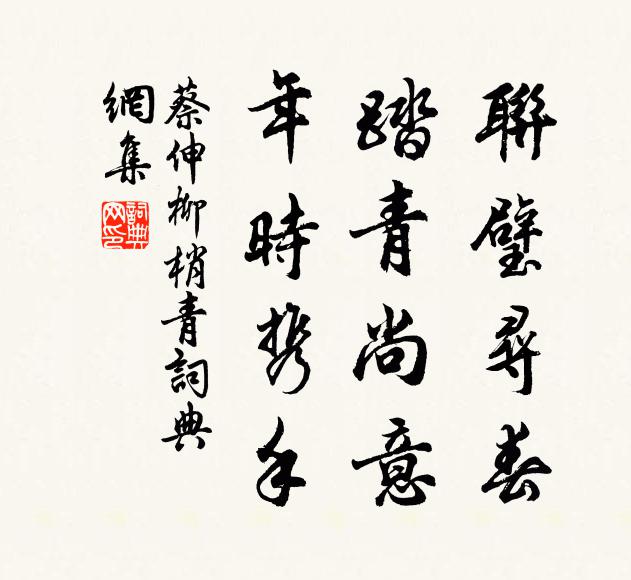 聯璧尋春
踏青尚意
年時携手
蔡伸柳梢青詞典
網集
詞典
网印